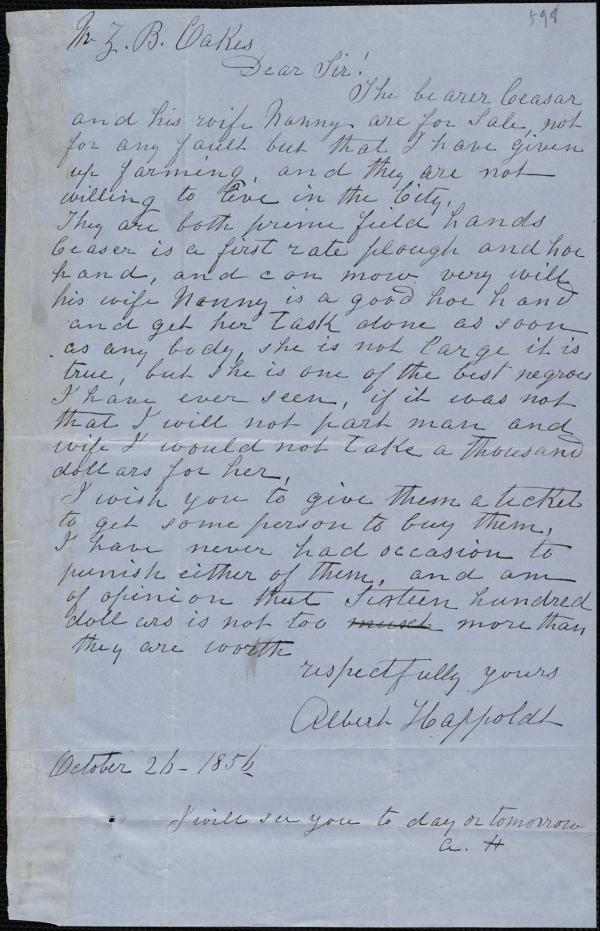 598
Mr Z. B. Oakes
Dear Sir!
The bearer Ceasar
and his wife Nanny are for Sale, not
for any fault but that I have given
up farming, and they are not
willing to live in the City.
They are both prime field hands
Ceaser is a first rate plough and hoe
hand, and can mow very will
his wife Nanny is a good hoe hand
and get her task done as soon
as any body, she is not large it is
true, but she is one of the best negroes
I have ever seen, if it was not
that I will not part man and
wife I would not take a thousand
dollars for her,
I wish you to give them a ticket
to get some person to buy them,
I have never had occasion to
punish either of them, and am
of opinion that Sixteen hundred
dollars is not too much more than
they are worth
respectfully yours
Albert Happoldt
October 26 - 1856
I will see you to day or tomorrow
A. H